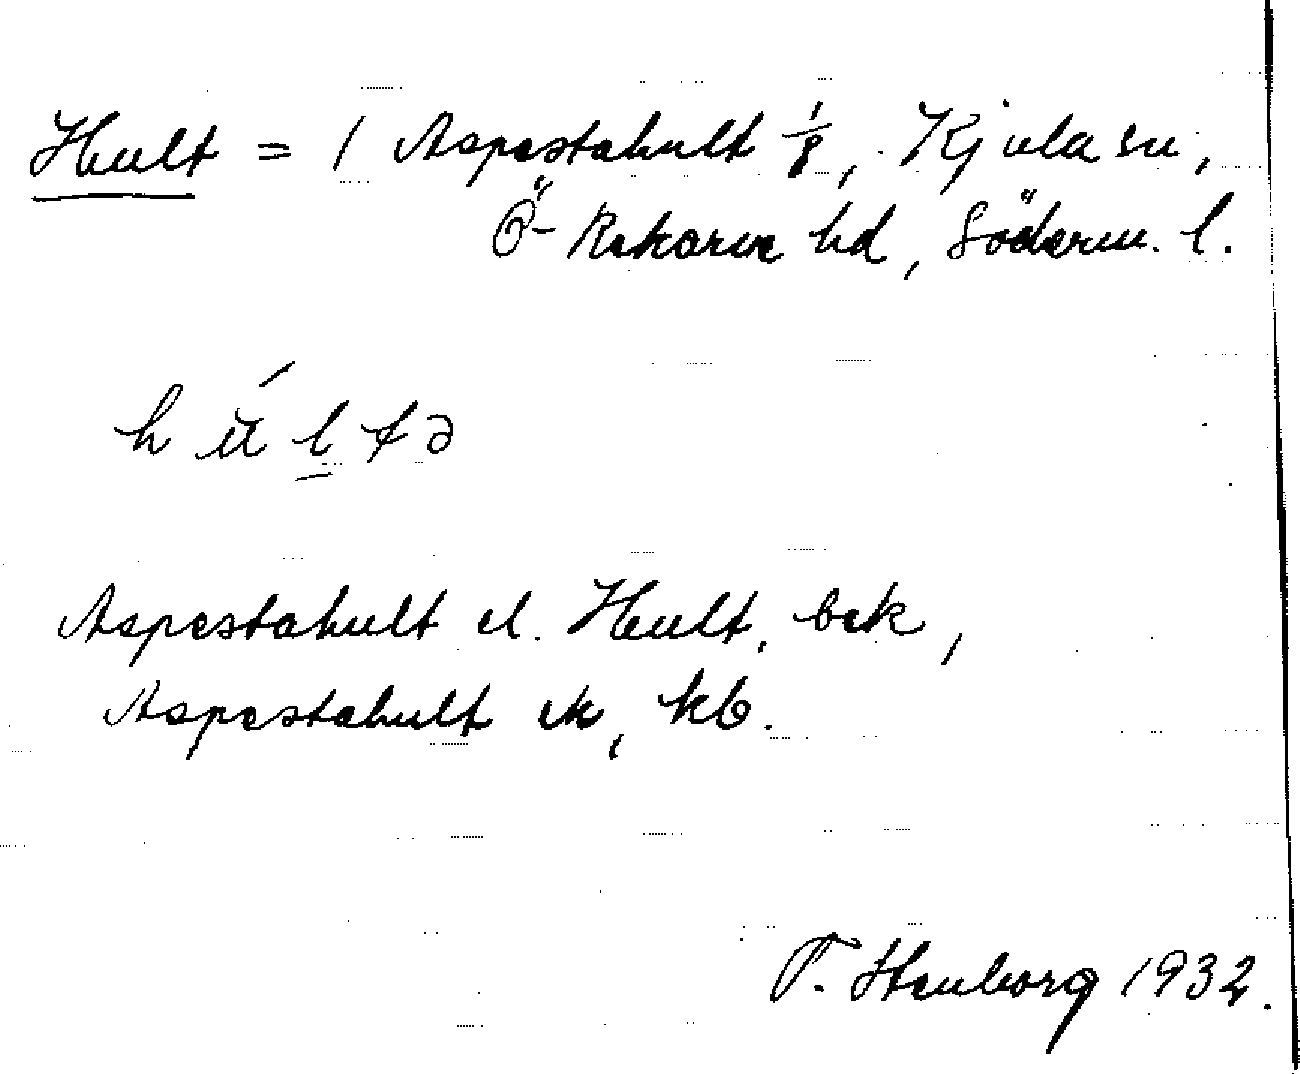 Hult = 1 Aspestahult 1/8, Kjula sn,
Ö-Rekarne hd, Söderm. l.
húltə
Aspestahult el. Hult, bek,
Aspestahult ek, kb.
T. Stenborg 1932.